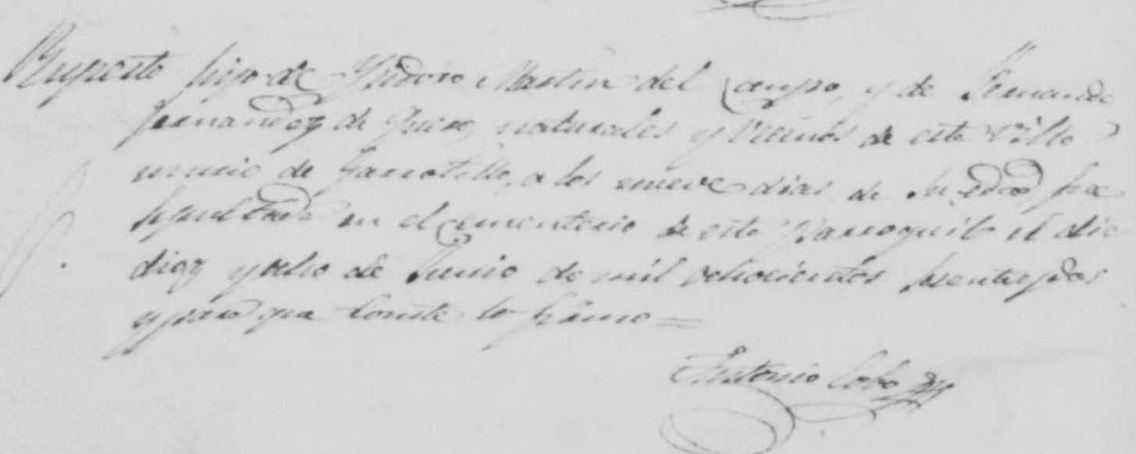 Ruperto hijo de Ysidoro Martin del Campo, y de Fernanda
Fernandez de Quero, naturales y vecinos de esta villa
murio de Garrotillo, a los nueve dias de su edad fue
sepultado en el cementerio de esta Parroquia el dia
diez y ocho de Junio de mil ochocientos sesenta y dos
y para que conste lo firmo =
Antonio Cobo